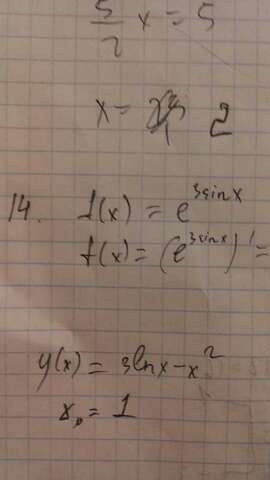 5/2 x = 5
x = 2
14. f(x) = e^(3sinx)
f(x) = (e^(3sinx))' =
y(x) = 3lnx - x^2
x₀ = 1